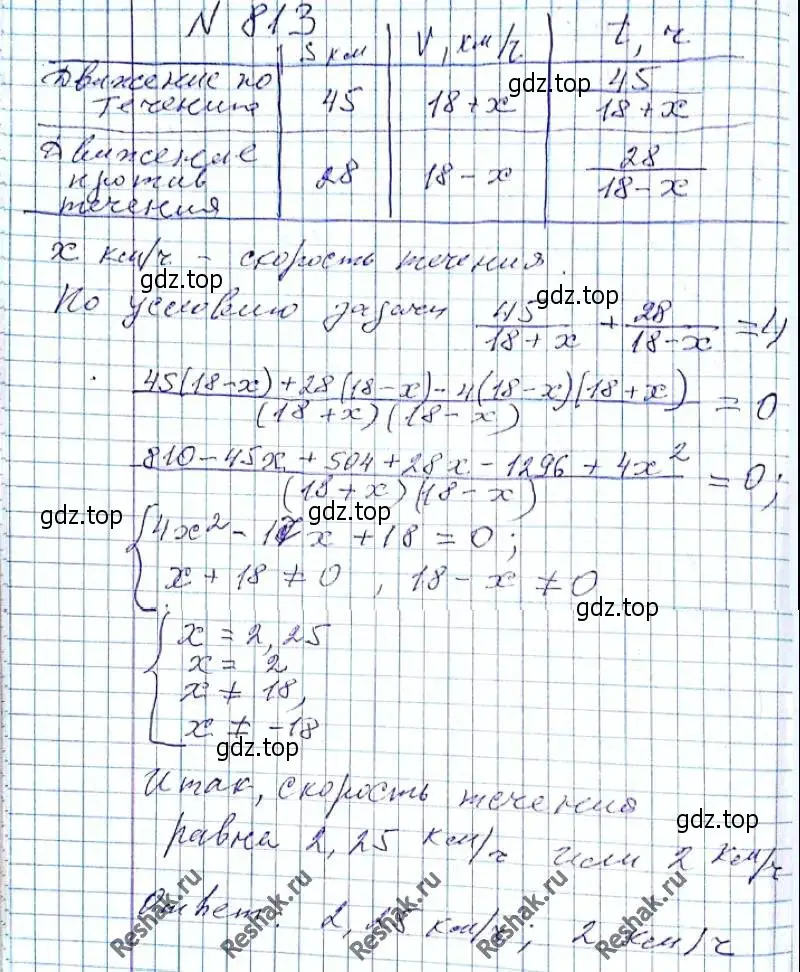 N 813
S км V, км/ч t, ч
Движение по течению 45 18 + x 45/(18 + x)
Движение против течения 28 18 - x 28/(18 - x)
x км/ч - скорость течения.
По условию задачи 45/(18 + x) + 28/(18 - x) = 4
(45(18-x) + 28(18-x) - 4(18-x)(18+x))/((18+x)(18-x)) = 0
(810 - 45x + 504 + 28x - 1296 + 4x²)/((18+x)(18-x)) = 0;
{4x² - 17x + 18 = 0;
x + 18 ≠ 0, 18 - x ≠ 0
{x = 2,25
x = 2
x ≠ 18,
x ≠ -18
Итак, скорость течения
равна 2,25 км/ч или 2 км/ч
Ответ: 2,25 км/ч; 2 км/ч
gdz.top
gdz.top
gdz.top
gdz.top
gdz.top
gdz.top
gdz.top
gdz.top
Reshak.ru
Reshak.ru
Reshak.ru
Reshak.ru
Reshak.ru